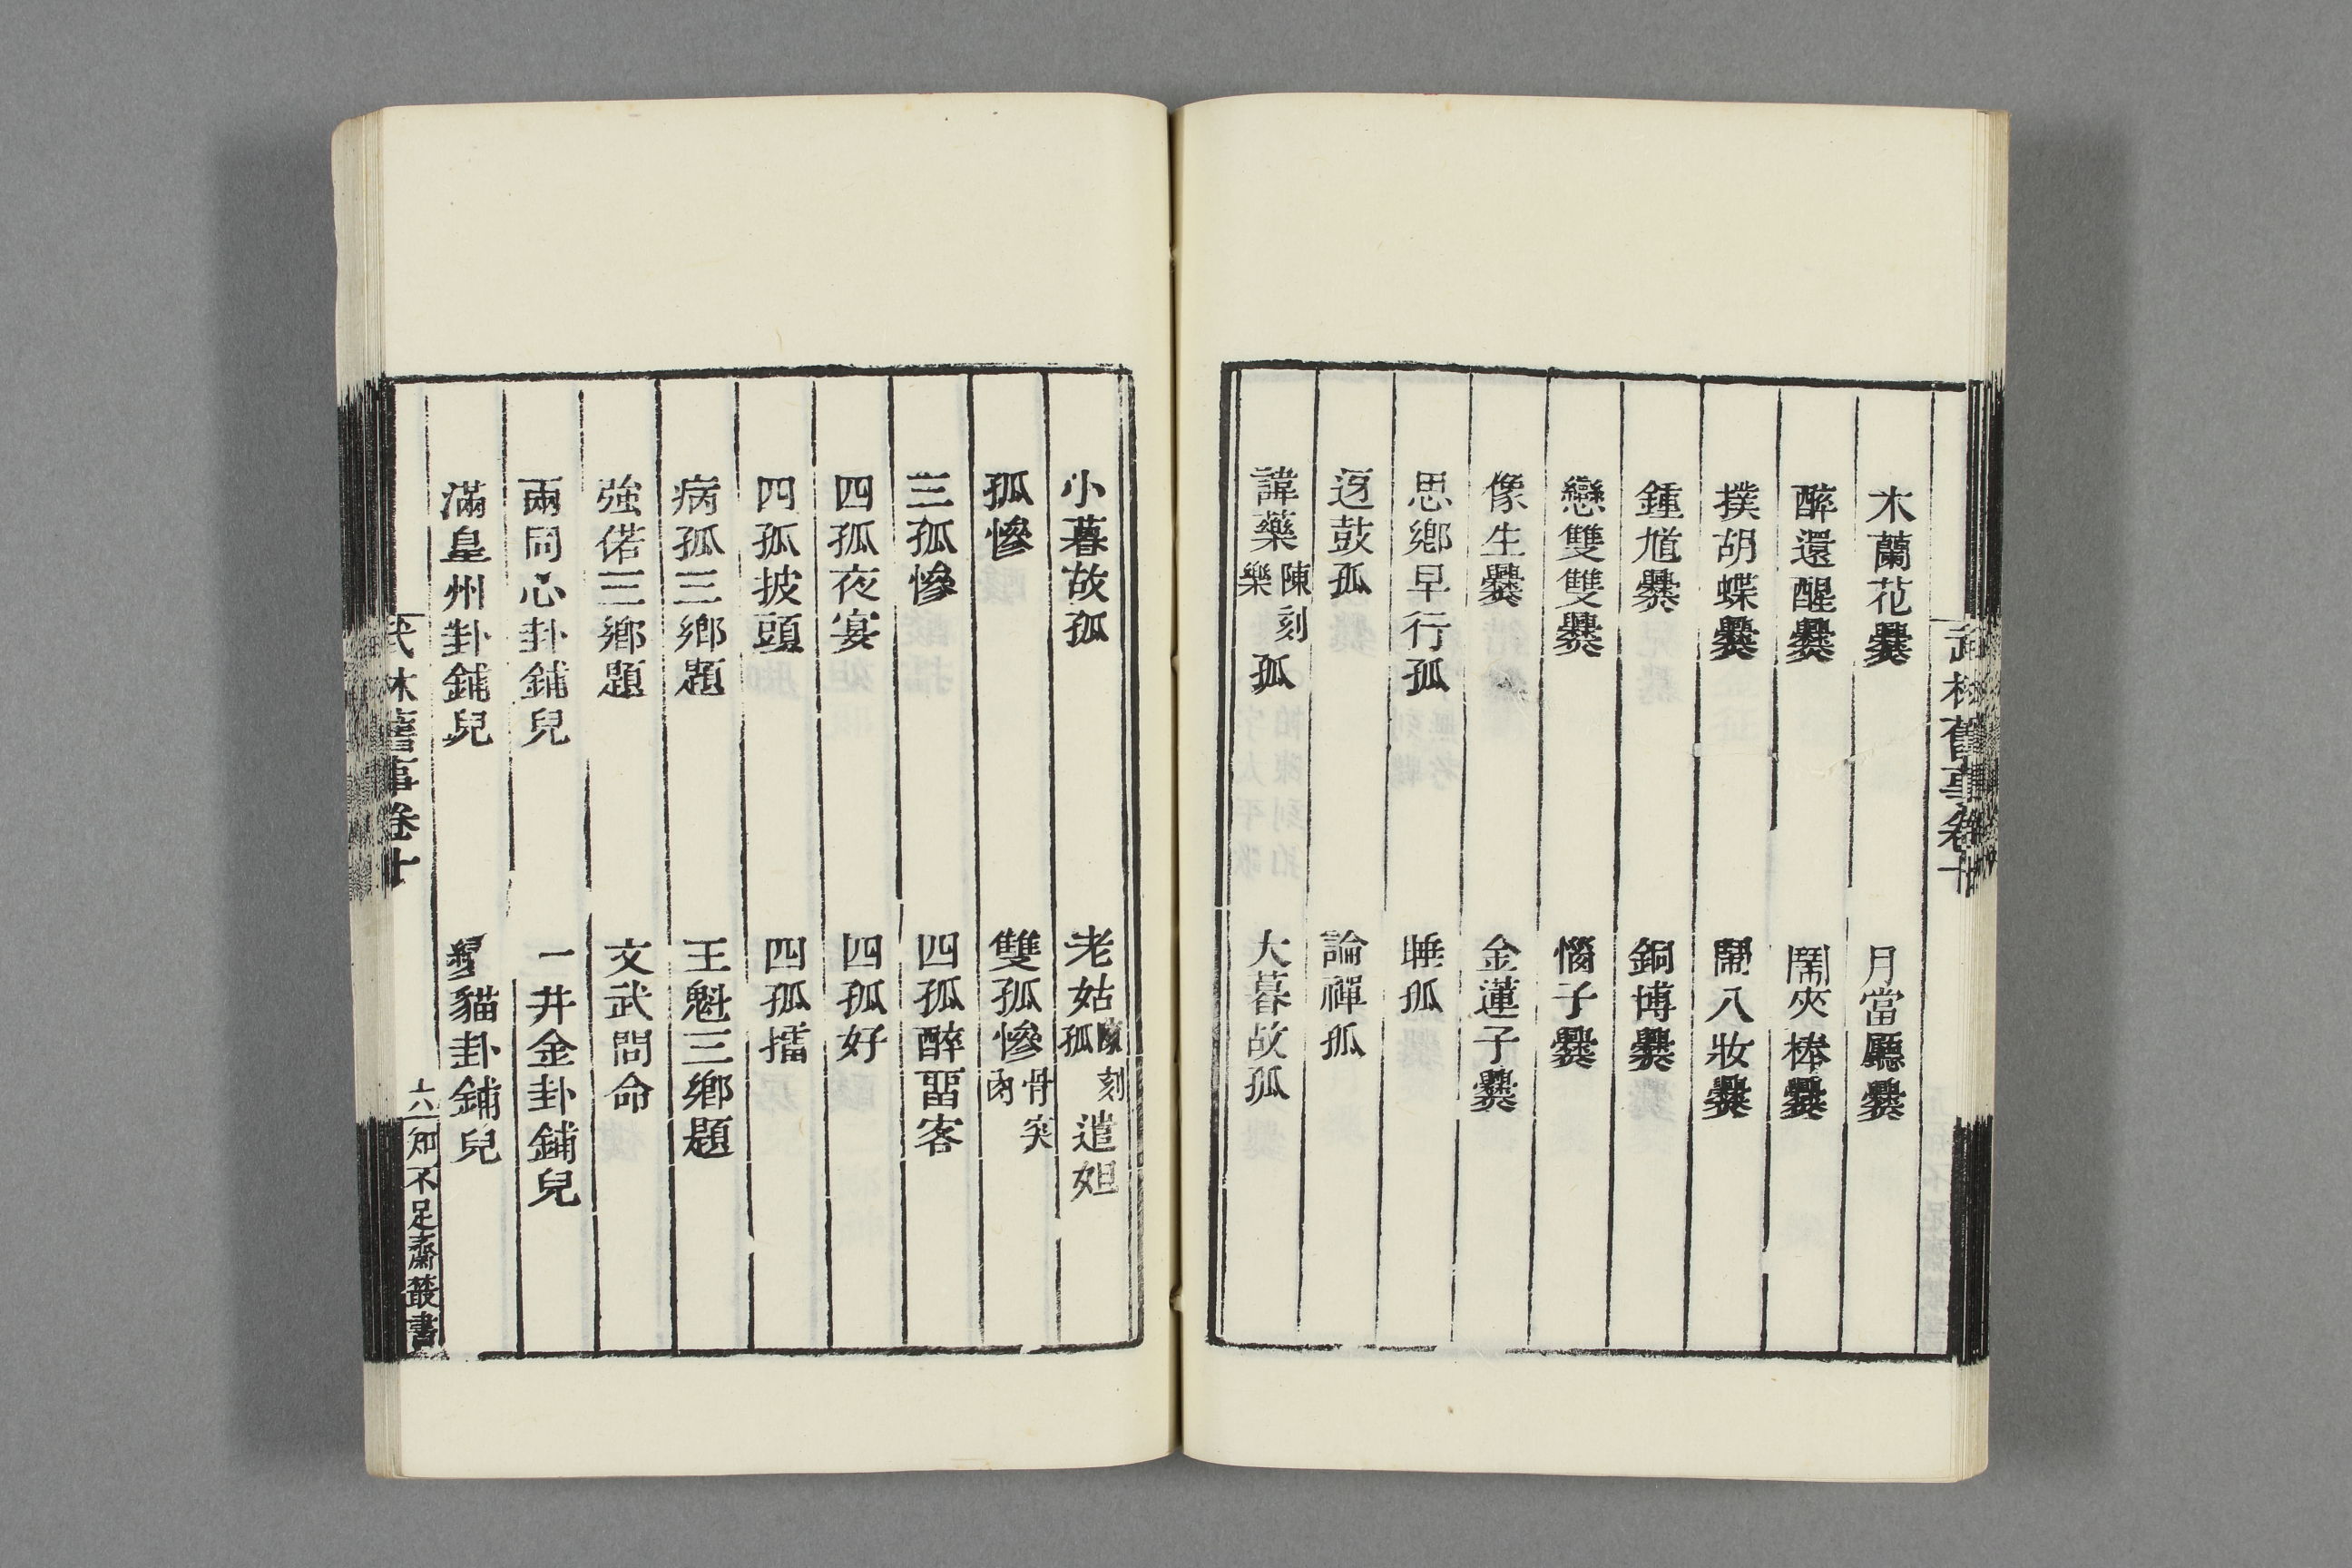 武林舊事卷十
木蘭花爨　月當廳爨
醉還醒爨　鬧夾棒爨
撲胡蝶爨　鬧八妝爨
鍾馗爨　銅博爨
戀雙雙爨　惱子爨
像生爨　金蓮子爨
思鄉早行孤　睡孤
迓鼓孤　論禪孤
諱藥陳刻樂孤　大暮故孤
小暮故孤　老姑陳刻孤遣妲
孤慘　雙孤慘骨突肉
三孤慘　四孤醉畱客
四孤夜宴　四孤好
四孤披頭　四孤擂
病孤三鄉題　王魁三鄉題
強偌三鄉題　文武問命
兩同心卦鋪兒　一井金卦鋪兒
滿皇州卦鋪兒　貓卦鋪兒
武林舊事卷十　六　知不足齋叢書